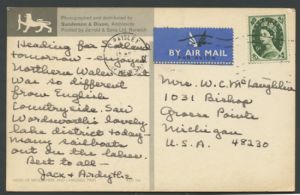 Photographed and distributed by
Sanderson & Dixon, Ambleside
Printed by Jarrold & Sons Ltd, Norwich
BY AIR MAIL
PAR AVION
Heading for Scotland
tomorrow - enjoyed
Northern Wales it
was so different
from English
Countryside. Saw
Wordsworth's lovely
lake district today -
Many sailboats
out on the lakes.
Best to all -
Jack + Ardythe
Mrs. W. C. McLaughlin
1031 Bishop
Grosse Pointe
Michigan
U.S.A. 48230